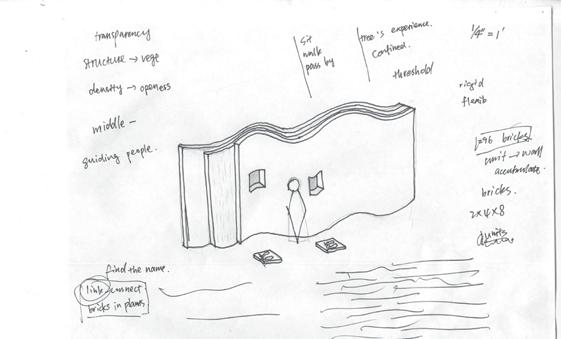 transparency
structure → vege
density → openess
middle —
guiding people.
sit
walk
pass by
tree's experience.
confined.
threshold
1/4" = 1'
rigid
flexib
1=96 bricks.
unit → wall
accumulate.
bricks.
2x4x8
units
find the name.
link connect
bricks in plants